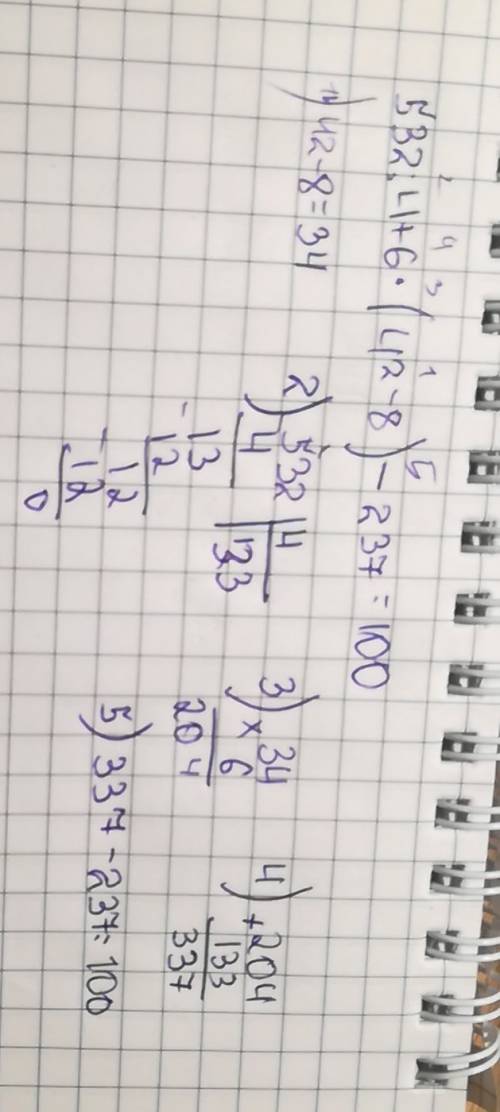 2 4 3 1 5
532:4+6·(42-8)-237=100
1) 42-8=34
2) 532 | 4
4 | 133
13
-12
12
-12
0
3) × 34
6
204
4) +204
133
337
5) 337-237=100